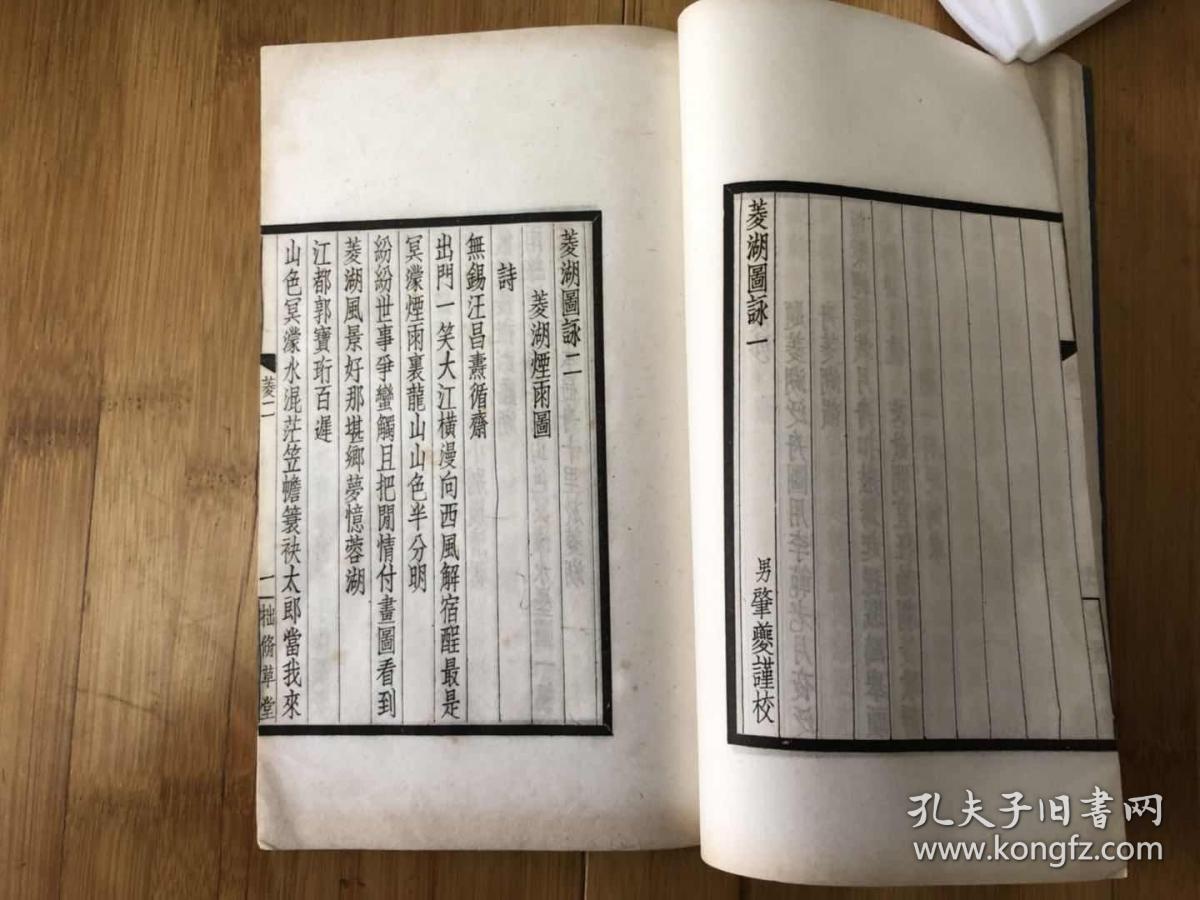 菱湖圖詠一
男肇夔謹校
菱湖圖詠二
菱湖煙雨圖
詩
無錫汪昌燾循齋
出門一笑大江橫漫向西風解宿酲最是
冥濛煙雨裏龍山山色半分明
紛紛世事爭蠻觸且把閒情付畫圖看到
菱湖風景好那堪鄉夢憶蓉湖
江都郭寶珩百遲
山色冥濛水混茫笠幨簑袂太郎當我來
菱二
一
拙脩草堂
孔夫子旧书网
www.kongfz.com